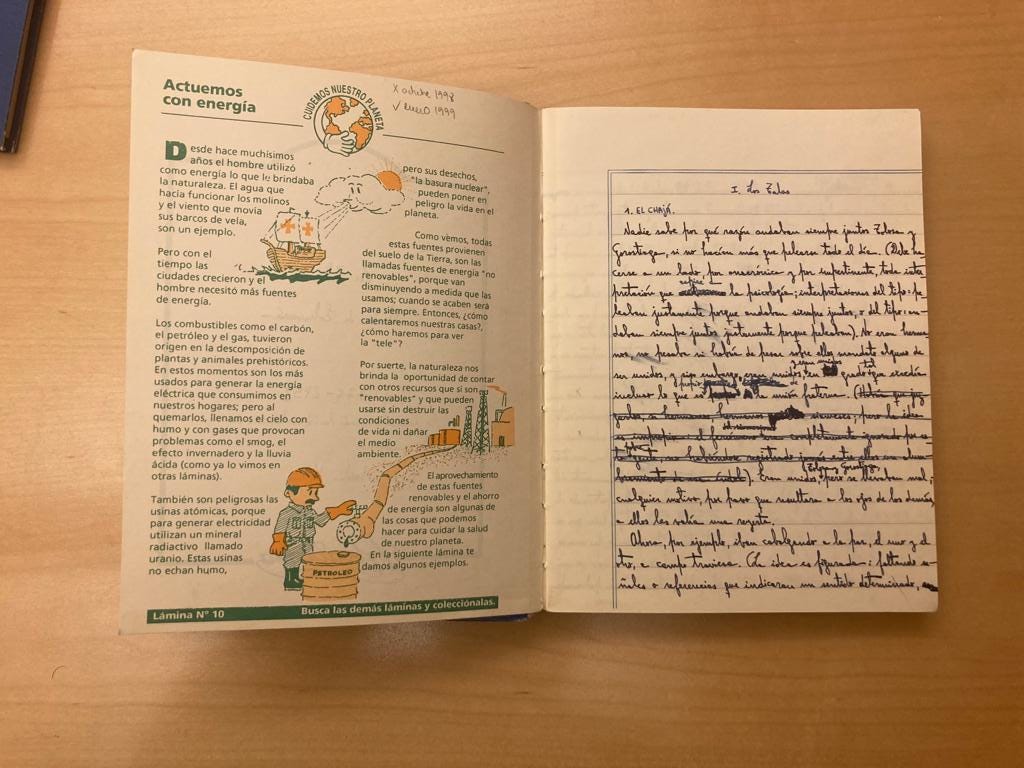 Actuemos
con energía
CUIDEMOS NUESTRO PLANETA
X octubre 1998
✓ enero 1999
Desde hace muchísimos
años el hombre utilizó
como energía lo que le brindaba
la naturaleza. El agua que
hacía funcionar los molinos
y el viento que movía
sus barcos de vela,
son un ejemplo.
Pero con el
tiempo las
ciudades crecieron y el
hombre necesitó más fuentes
de energía.
Los combustibles como el carbón,
el petróleo y el gas, tuvieron
origen en la descomposición de
plantas y animales prehistóricos.
En estos momentos son los más
usados para generar la energía
eléctrica que consumimos en
nuestros hogares; pero al
quemarlos, llenamos el cielo con
humo y con gases que provocan
problemas como el smog, el
efecto invernadero y la lluvia
ácida (como ya lo vimos en
otras láminas).
También son peligrosas las
usinas atómicas, porque
para generar electricidad
utilizan un mineral
radiactivo llamado
uranio. Estas usinas
no echan humo,
pero sus desechos,
"la basura nuclear",
pueden poner en
peligro la vida en el
planeta.
Como vemos, todas
estas fuentes provienen
del suelo de la Tierra, son las
llamadas fuentes de energía "no
renovables", porque van
disminuyendo a medida que las
usamos; cuando se acaben será
para siempre. Entonces, ¿cómo
calentaremos nuestras casas?,
¿cómo haremos para ver
la "tele"?
Por suerte, la naturaleza nos
brinda la oportunidad de contar
con otros recursos que sí son
"renovables" y que pueden
usarse sin destruir las
condiciones
de vida ni dañar
el medio
ambiente.
El aprovechamiento
de estas fuentes
renovables y el ahorro
de energía son algunas de
las cosas que podemos
hacer para cuidar la salud
de nuestro planeta.
En la siguiente lámina te
damos algunos ejemplos.
PETROLEO
Lámina Nº 10
Busca las demás láminas y coleccíonalas.
I. Los Talas
1. EL CHAJÁ.
Nadie sabe por qué razón andaban siempre juntos Zelosa y
Gorostiaga, si no hacían más que pelearse todo el día. (Debe ha
cerse a un lado, por onerosa y por impertinente, toda inter
pretación que la psicología; interpretaciones del tipo: pe
leaban justamente porque andaban siempre juntos, o del tipo: an
daban siempre juntos justamente porque peleaban). No eran herma
nos, no pesaba ni habría de pesar sobre ellos mandato alguno de
ser unidos, y sin embargo eran unidos, en grado tal que excedía
incluso lo que es la unión fraterna.
Eran unidos, pero se llevaban mal,
cualquier motivo, por parvo que resultara a los ojos de los demás,
a ellos les valía una reyerta.
Ahora, por ejemplo, iban cabalgando a la par, el uno y el
otro, a campo traviesa. (La idea es figurada: faltando se
ñales o referencias que indicaran un sentido determinado,